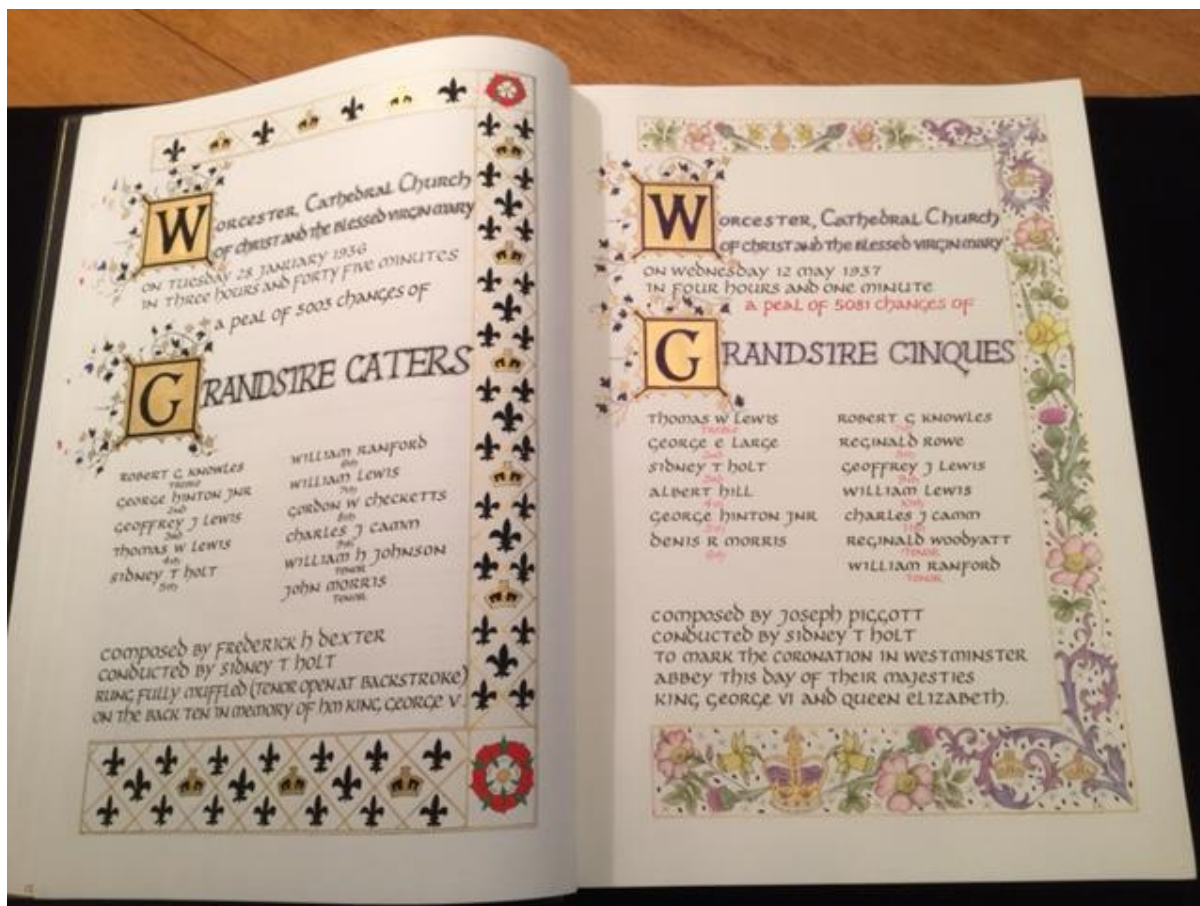 WORCESTER, CATHEDRAL CHURCH
OF CHRIST AND THE BLESSED VIRGIN MARY
ON TUESDAY 28 JANUARY 1936
IN THREE HOURS AND FORTY FIVE MINUTES
A PEAL OF 5003 CHANGES OF
GRANDSIRE CATERS
ROBERT G KNOWLES
TREBLE
GEORGE HINTON JNR
2ND
GEOFFREY J LEWIS
3RD
THOMAS W LEWIS
4TH
SIDNEY T HOLT
5TH
WILLIAM RANFORD
6TH
WILLIAM LEWIS
7TH
GORDON W CHECKETTS
8TH
CHARLES J CAMM
9TH
WILLIAM H JOHNSON
TENOR
JOHN MORRIS
TENOR
COMPOSED BY FREDERICK H DEXTER
CONDUCTED BY SIDNEY T HOLT
RUNG FULLY MUFFLED (TENOR OPEN AT BACKSTROKE)
ON THE BACK TEN IN MEMORY OF HM KING GEORGE V.
WORCESTER, CATHEDRAL CHURCH
OF CHRIST AND THE BLESSED VIRGIN MARY
ON WEDNESDAY 12 MAY 1937
IN FOUR HOURS AND ONE MINUTE
A PEAL OF 5081 CHANGES OF
GRANDSIRE CINQUES
THOMAS W LEWIS
TREBLE
GEORGE E LARGE
2ND
SIDNEY T HOLT
3RD
ALBERT HILL
4TH
GEORGE HINTON JNR
5TH
DENIS R MORRIS
6TH
ROBERT G KNOWLES
7TH
REGINALD ROWE
8TH
GEOFFREY J LEWIS
9TH
WILLIAM LEWIS
10TH
CHARLES J CAMM
11TH
REGINALD WOODYATT
TENOR
WILLIAM RANFORD
TENOR
COMPOSED BY JOSEPH PIGGOTT
CONDUCTED BY SIDNEY T HOLT
TO MARK THE CORONATION IN WESTMINSTER
ABBEY THIS DAY OF THEIR MAJESTIES
KING GEORGE VI AND QUEEN ELIZABETH.